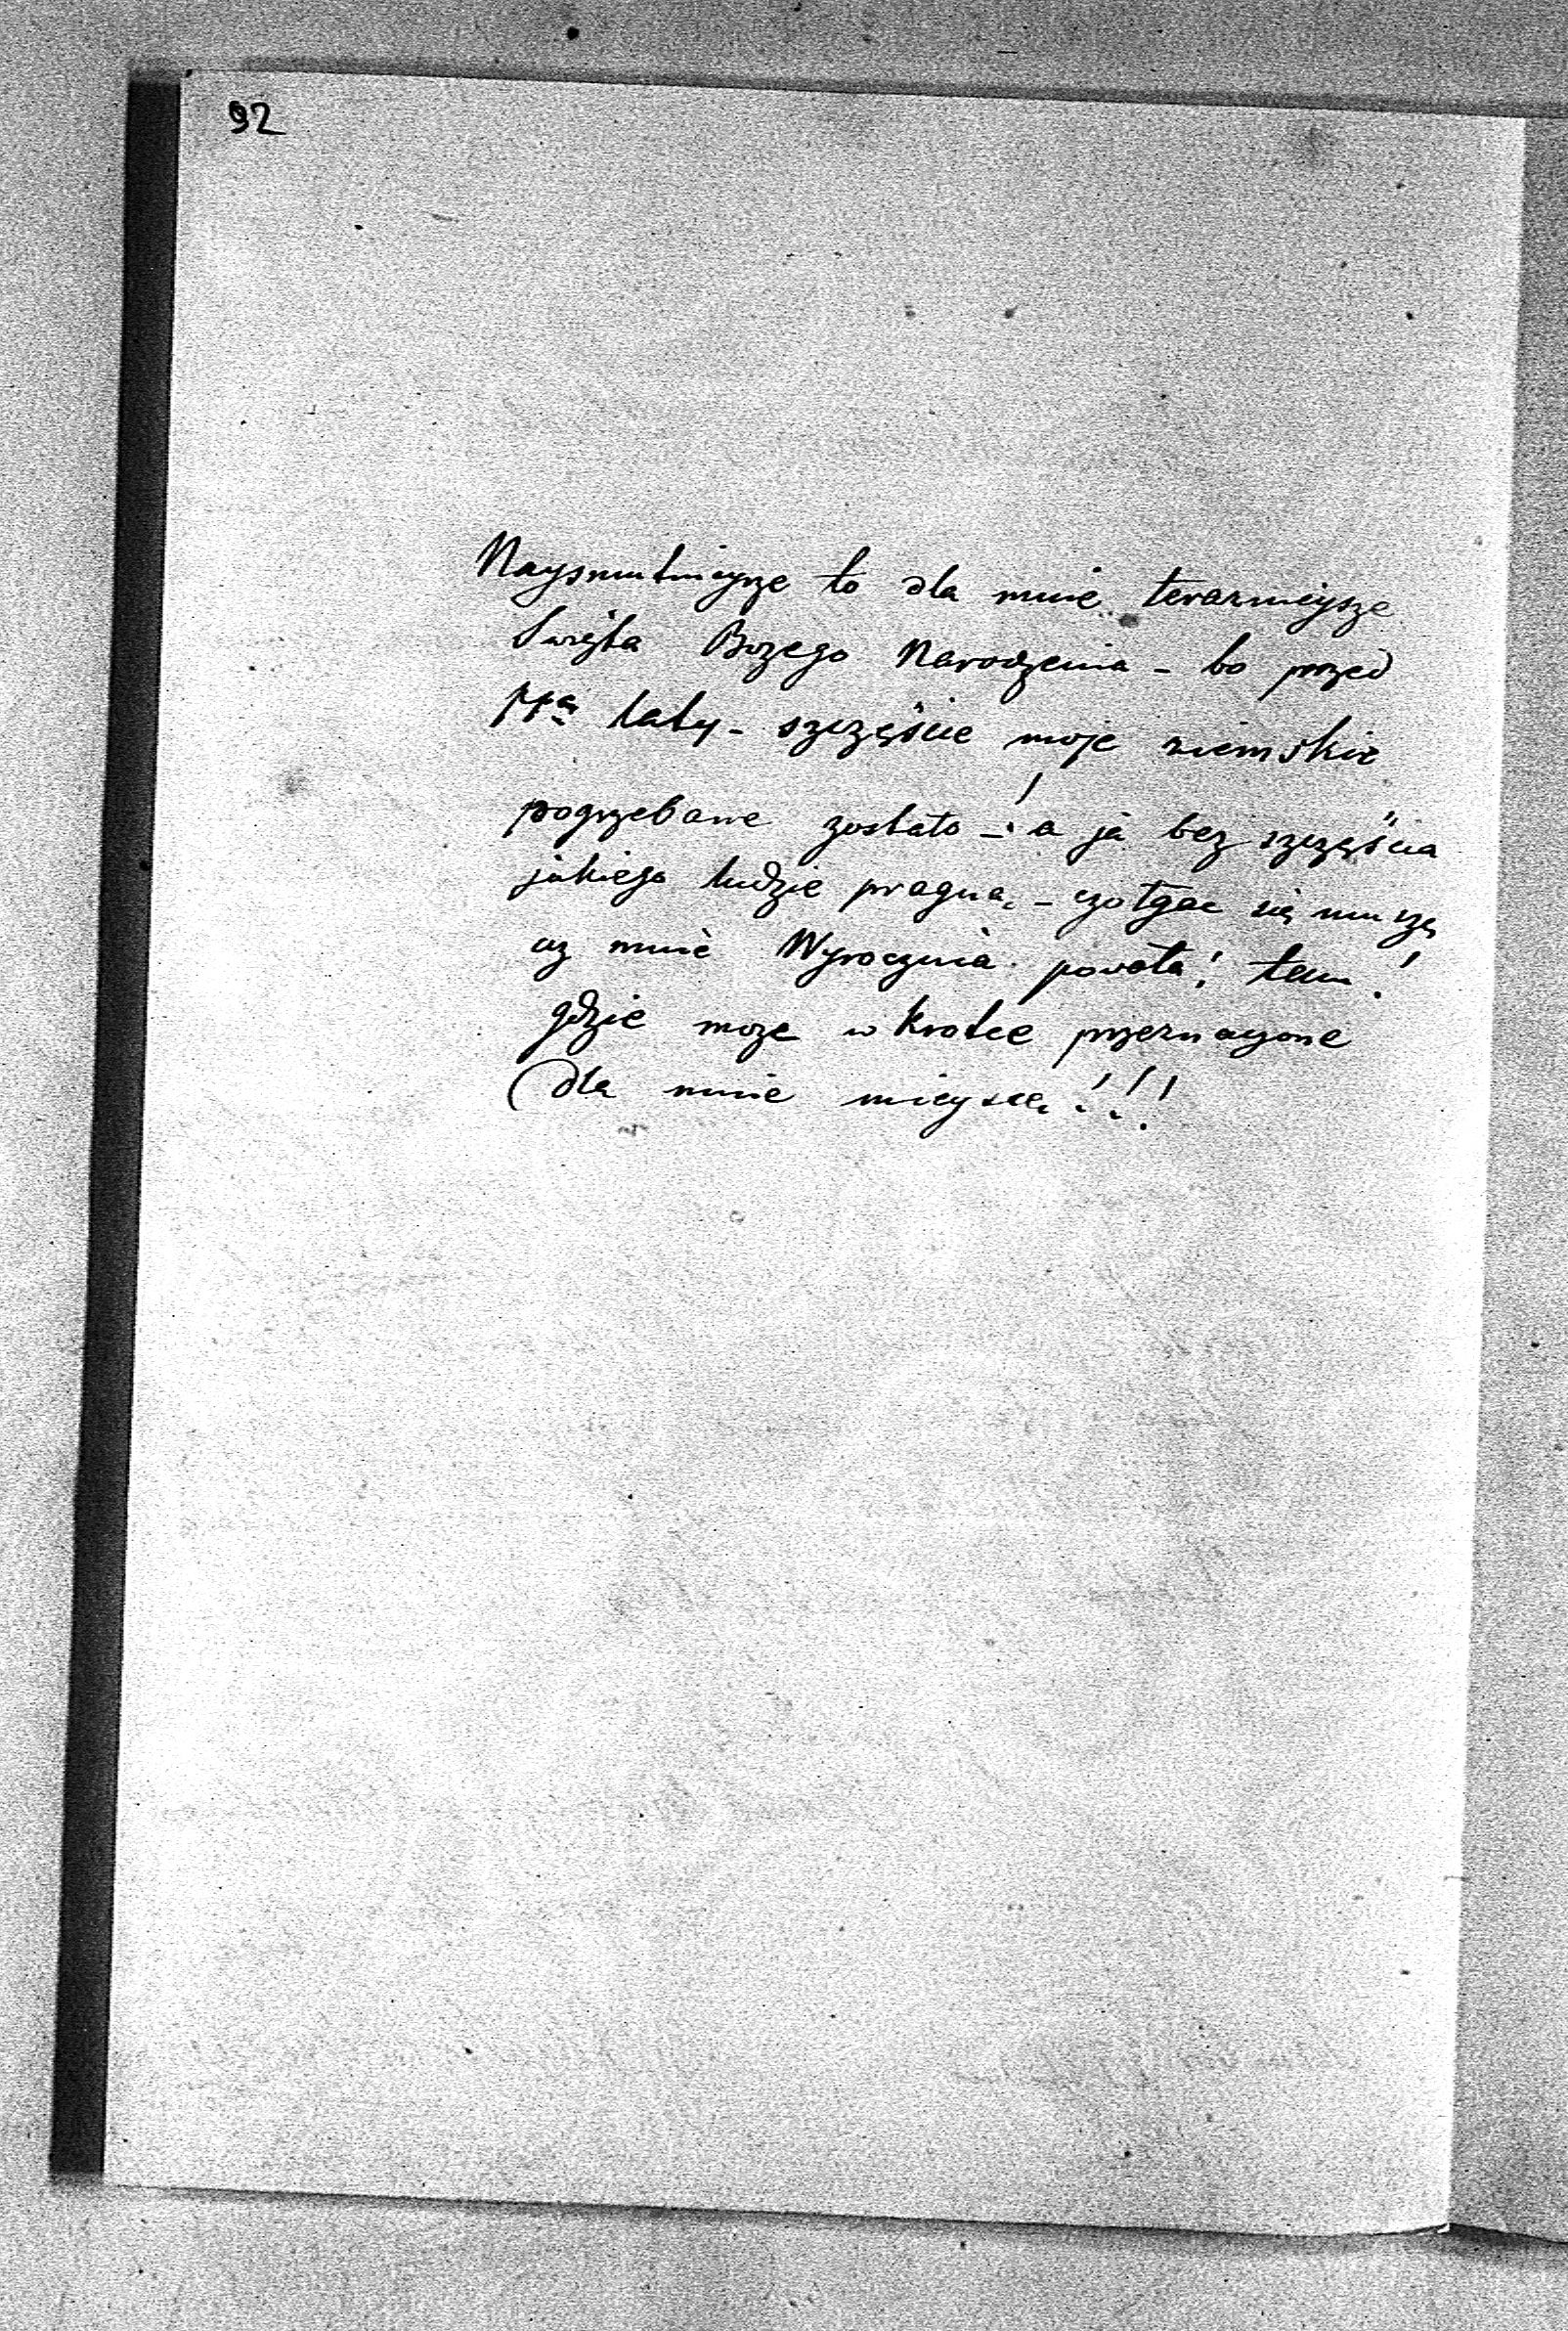 92
Naysmutnieysze to dla mnie teraznieysze
Swięta Bozego Narodzenia - bo przed
laty - szczęście moje ziemskie
pogrzebane zostało -! a ja bez szczęścia
jakiego ludzie pragną - czołgac się muszę
az mnie Wyrocznia powoła! tam!
gdzie moze w krotce przeznaczone
dla mnie mieysce!!!